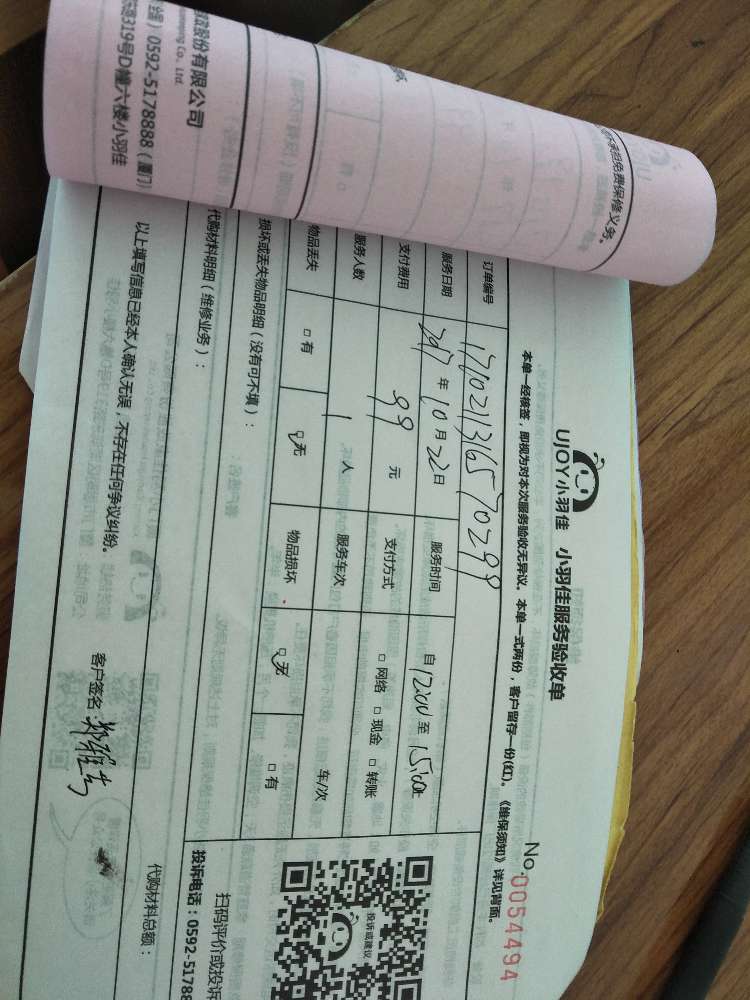 UJOY小羽佳 小羽佳服务验收单
No.0054494
本单一经核签，即视为对本次服务验收无异议。本单一式两份，客户留存一份(红)。《维保须知》详见背面。
订单编号 171021136570299
服务日期 2017年10月22日 服务时间 自12:00至15:00止
支付费用 99元 支付方式 □网络 □现金 □转账
服务人数 1人 服务车次 车/次
物品丢失 □有 □无 物品损坏 □无 □有
损坏或丢失物品明细（没有可不填）：
代购材料明细（维修业务）：
代购材料总额：
以上填写信息已经本人确认无误，不存在任何争议纠纷。
客户签名
投诉或建议
扫码评价或投诉
投诉电话：0592-51788
不承担免费保修义务。
股份有限公司
Co., Ltd.
0592-5178888（厦门）
路319号D幢六楼小羽佳